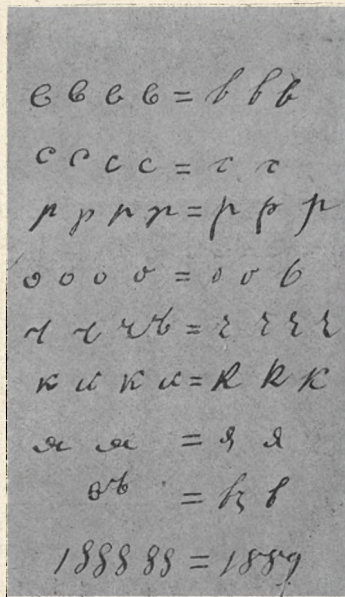 в в в в = в в в
с с с с = с с
р р р р = р р р
о о о о = о о
ч ч = ч ч ч ч
к к к к = к к к
я я = я я
= в
188888 = 1889